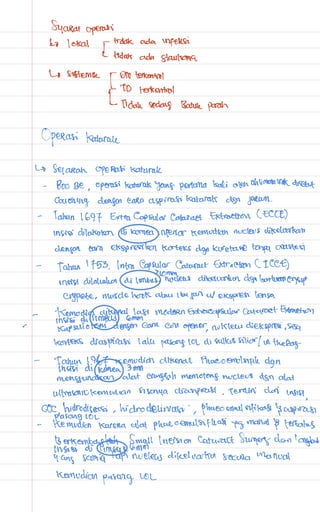 Syarat operasi
↳ lokal tidak ada infeksi
tidak ada glaukoma
↳ sistemik DM terkontrol
TD terkontrol
Tidak sedang Batuk parah
Operasi Katarak
↳ Sejarah operasi katarak
- 800 SE, operasi katarak yang pertama kali oleh disebut
Couching dengan cara aspirasi katarak dgn jarum.
- Tahun 1697 Extra Capsular Cataract Extraction (ECCE)
insisi dilakukan di kornea inferior kemudian nucleus dikeluarkan
dengan cara ekspresikan korteks dgn kuretase tanpa
- Tahun 1753, Intra Capsular Cataract Extraction (ICCE)
insisi dilakukan di limbus nucleus dikeluarkan dgn
muscle hook atau ibu jari u/ ekspresi lensa
- Kemudian dikenal lagi modern Extracapsular Cataract Extraction
insisi di limbus 6mm
dengan cara can opener, nukleus diekspresi, sisa
korteks diaspirasi lalu pasang IOL di sulkus silier / in the bag
- Tahun kemudian dikenal Phacoemulsifik dgn
insisi di kornea 3mm
menggunakan alat canggih memotong nucleus dgn alat
ultrasonik kemudian sisanya diaspirasi. Terdiri dari insisi,
CCC, hidrodiseksi, hidrodelineasi, phacoemulsifikasi & aspirasi
pasang IOL
- Kemudian karena alat phacoemulsifikasi yg mahal & terbatas
berkembanglah Small Incision Cataract Surgery dan
insisi di limbus 6mm
yang sama tapi nukleus dikeluarkan secara manual
Kemudian pasang IOL